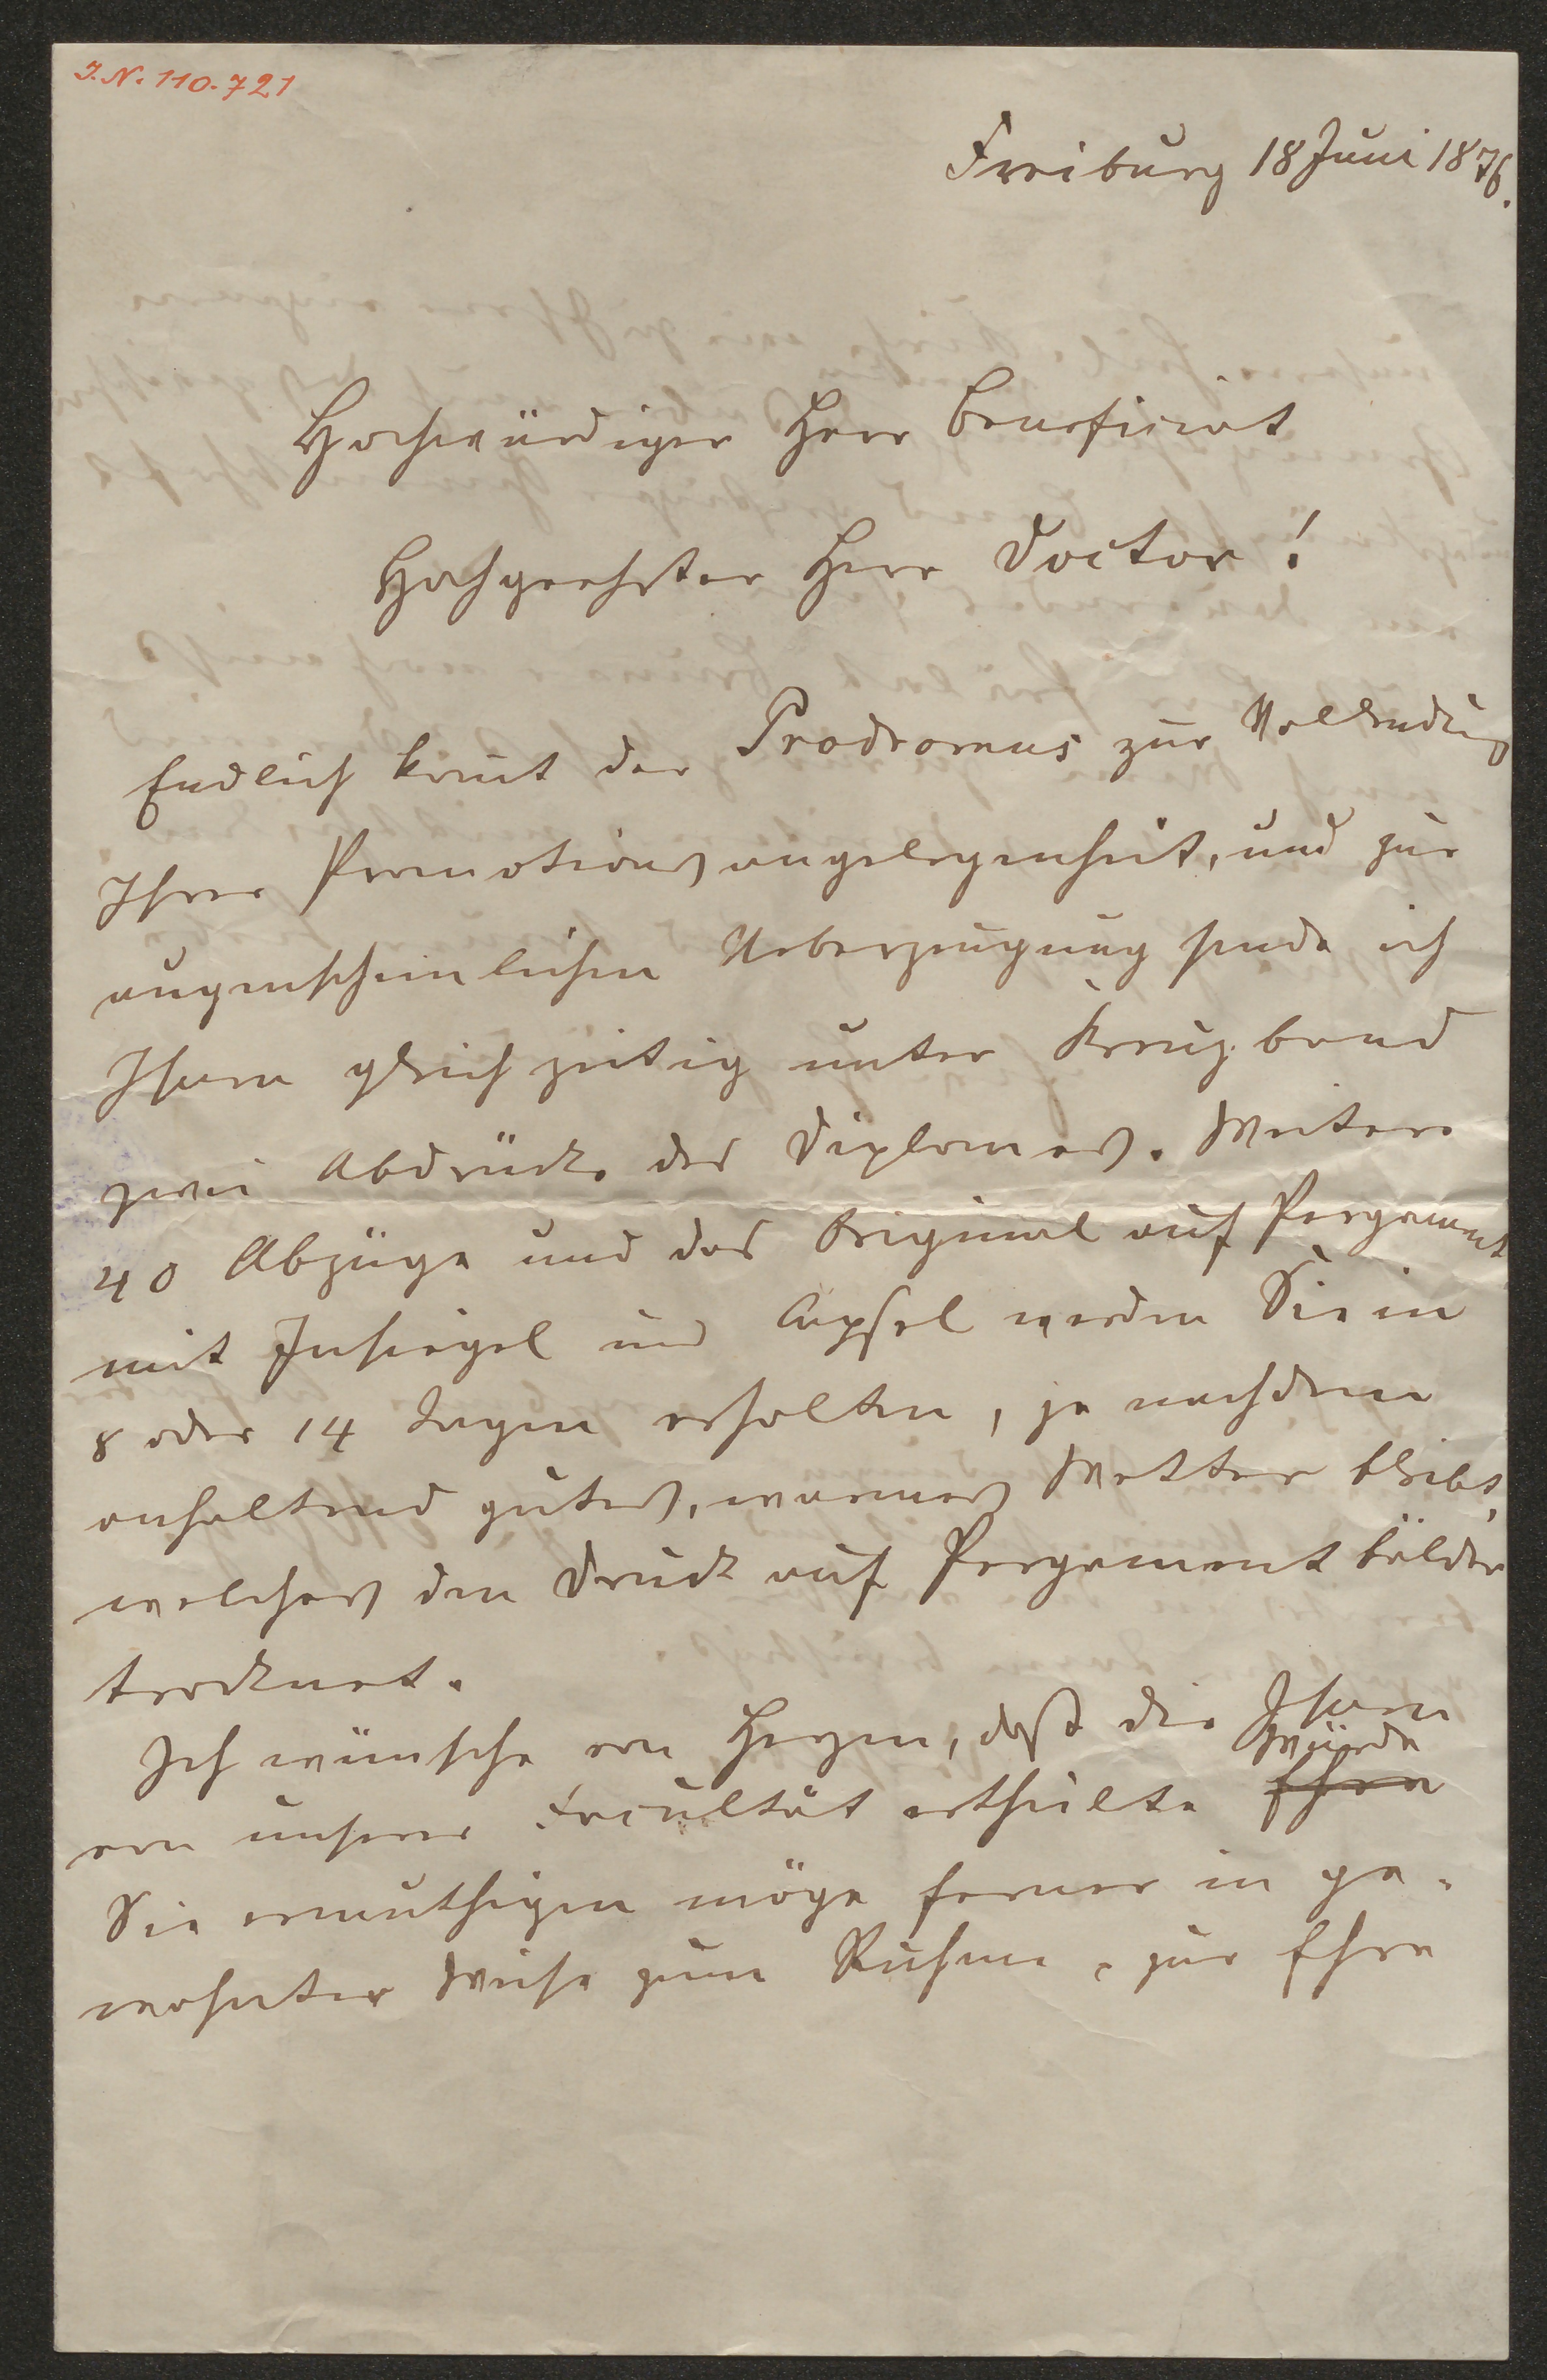 I.N. 110.721
Freiburg 18 Juni 1876.
Hochwürdiger Herr Beneficiat
Hochgeehrter Herr Doctor!
Endlich kommt der Prodromus zur Vollendung
Ihrer Promotionsangelegenheit, und zur
augenscheinlichen Ueberzeugung sende ich
Ihnen gleichzeitig unter Kreuzband
zwei Abdrücke des Diplomes. Weitere
40 Abzüge und das Original auf Pergament
mit Insiegel und Capsel werden Sie in
8 oder 14 Tagen erhalten, je nachdem
anhaltend gutes, warmes Wetter bleibt,
welches den Druck auf Pergament bälder
trocknet.
Ich wünsche von Herzen, daß die Ihnen
Würde
von unserer Facultät ertheilte Ehre
Sie ermuthigen möge ferner in ge-
wohnter Weise zum Ruhme, zur Ehre